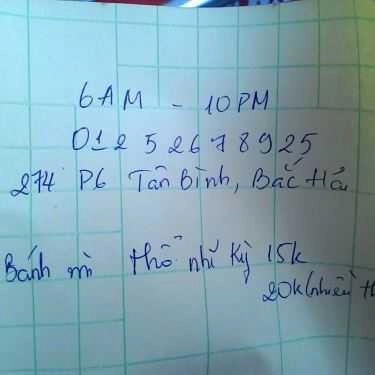 6AM - 10PM
012 5 26 7 8 9 25
274 P6 Tân Bình, Bắc Hải
Bánh mì thổ nhĩ kỳ 15k
20k (nhiều